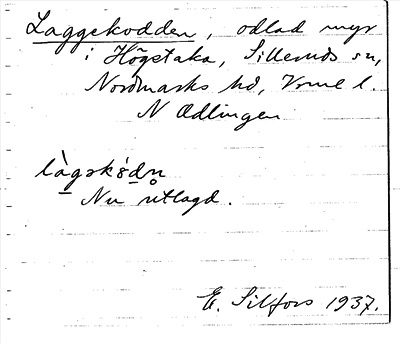 Laggekodden, odlad myr
i Högstaka, Silleruds sn,
Nordmarks hd, Vrml l.
N Ödlingen
làgskö̀dn
Nu utlagd.
E. Silfors 1937.